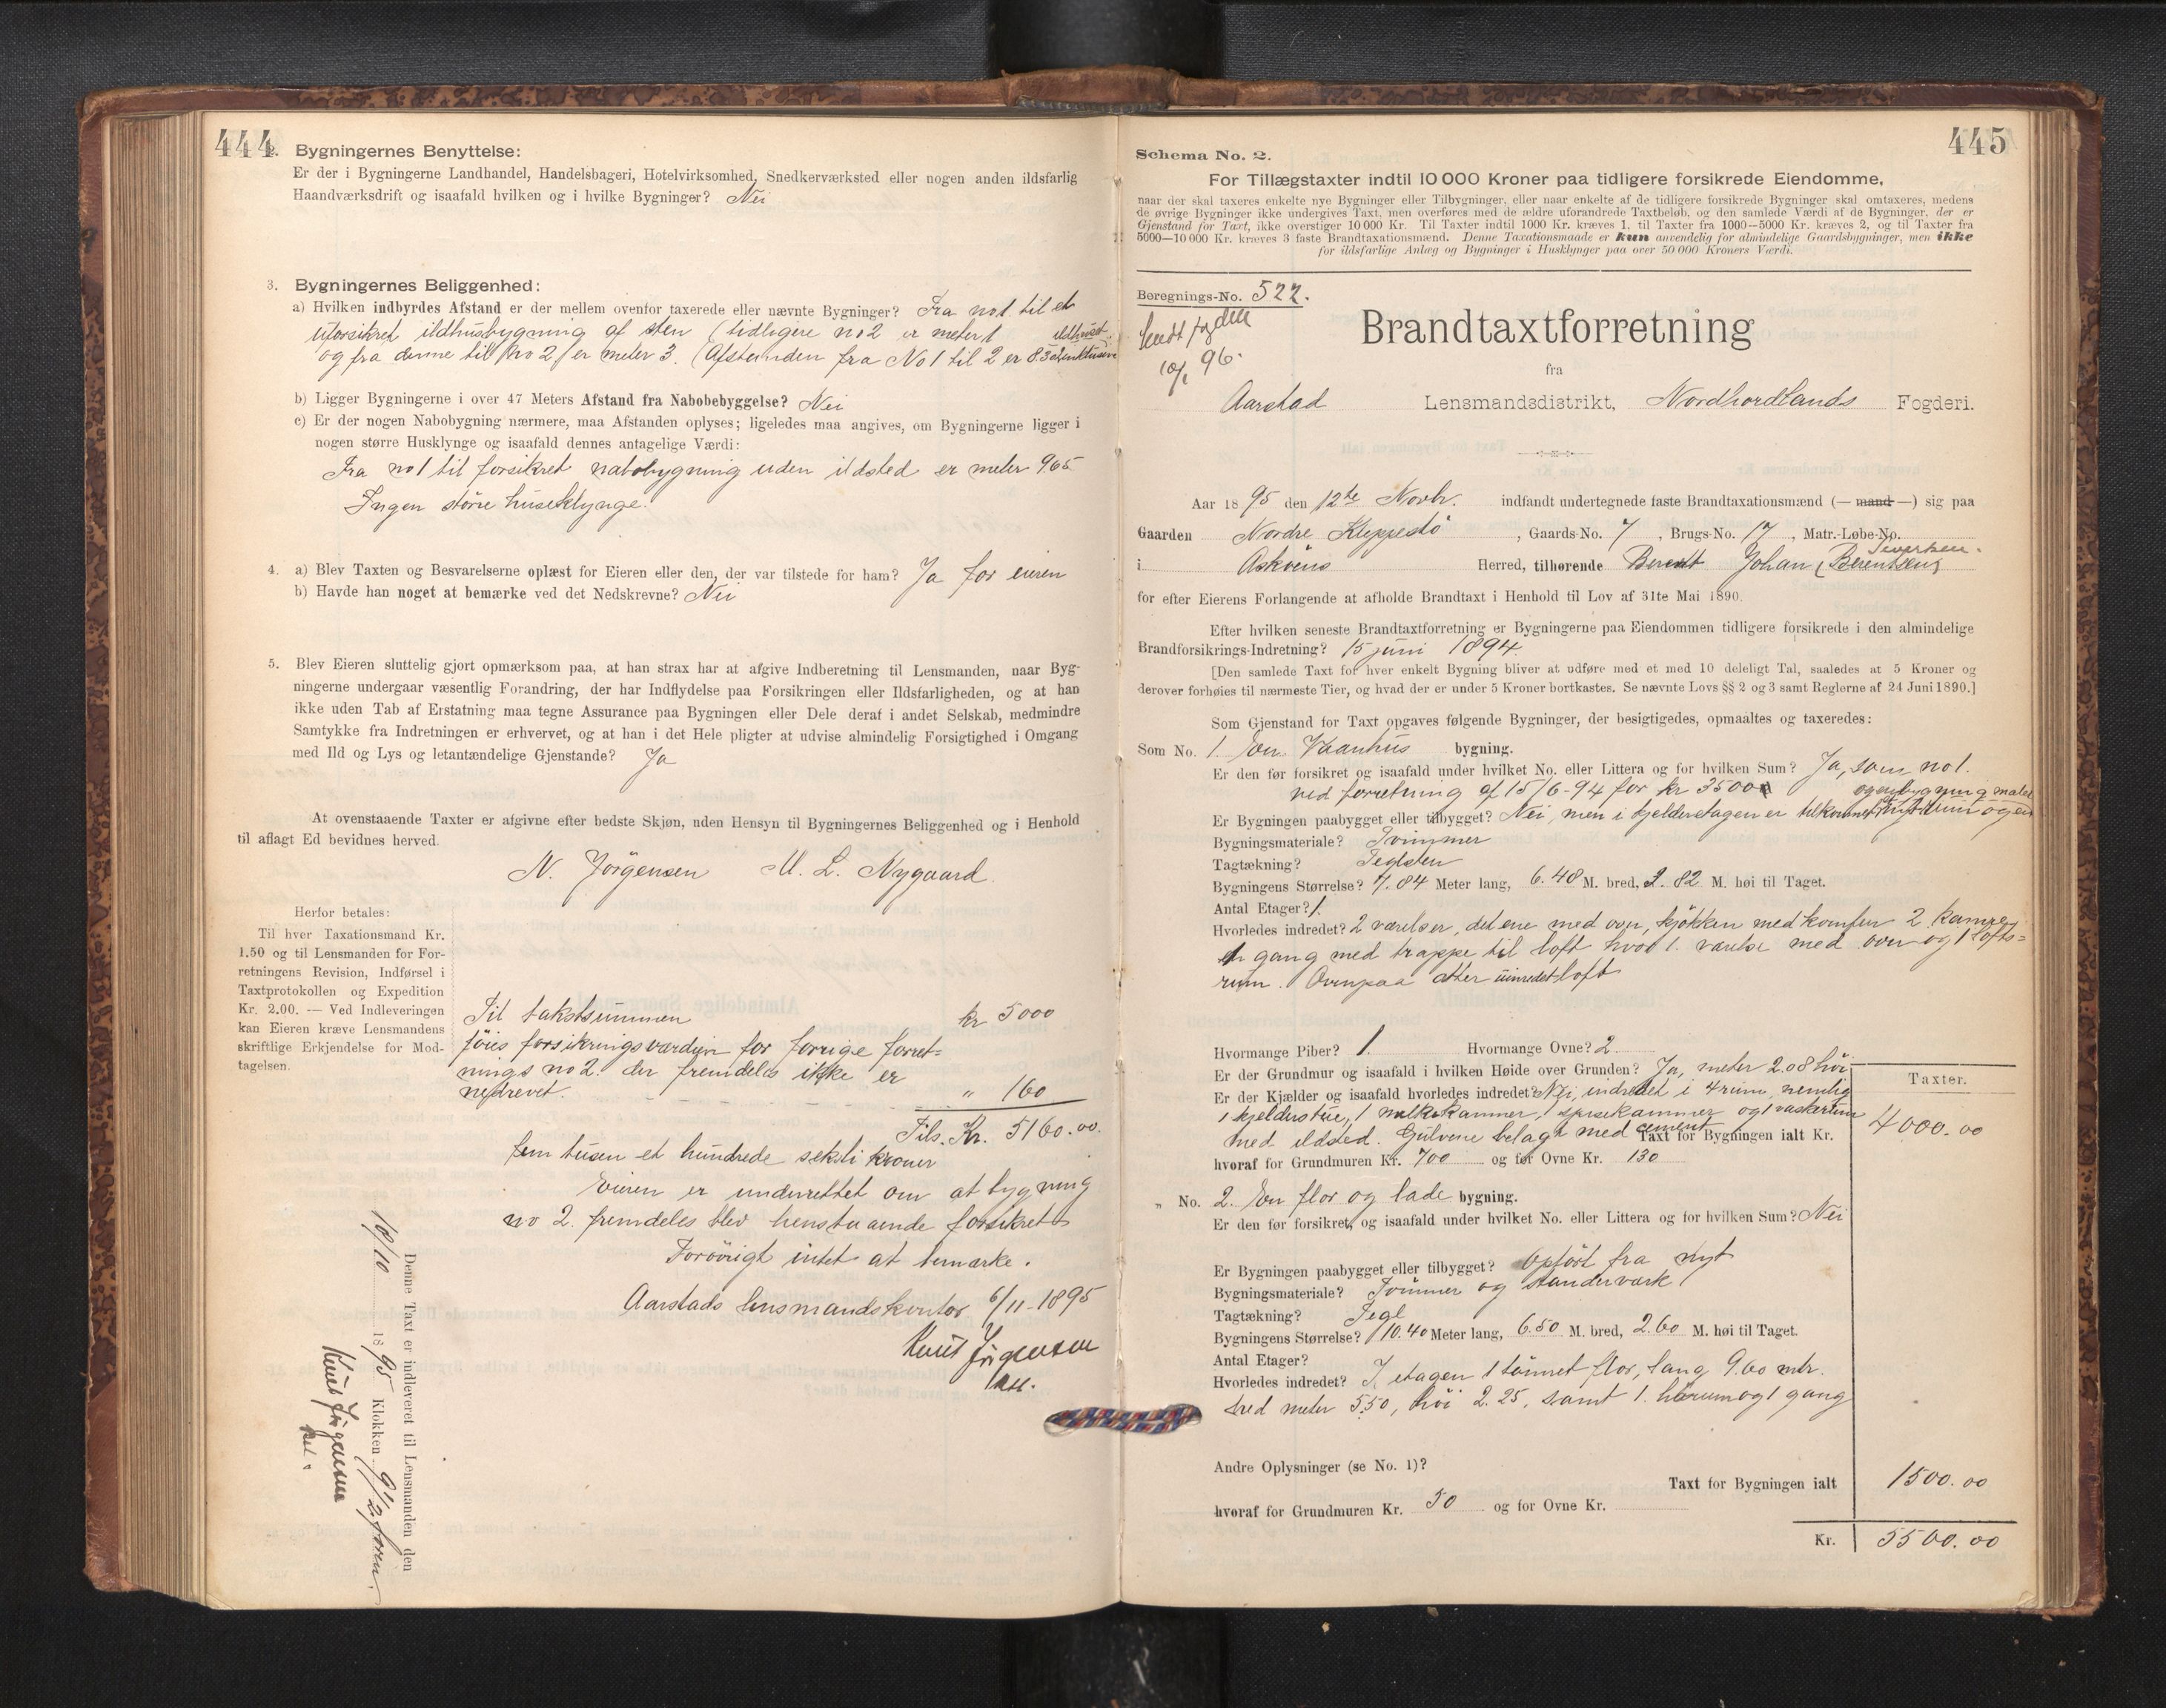 444
2. Bygningernes Benyttelse:
Er der i Bygningerne Landhandel, Handelsbageri, Hotelvirksomhed, Snedkerværksted eller nogen anden ildsfarlig
Haandværksdrift og isaafald hvilken og i hvilke Bygninger? Nei
3. Bygningernes Beliggenhed:
a) Hvilken indbyrdes Afstand er der mellem ovenfor taxerede eller nævnte Bygninger? Fra no 1 til et
uforsikret ildhusbygning af sten (tidligere no 2 er meter 1
og fra denne til No 2 er meter 3. (Afstanden fra No 1 til 2 er 8.52 ildhuset inklusive
b) Ligger Bygningerne i over 47 Meters Afstand fra Nabobebyggelse? Nei
c) Er der nogen Nabobygning nærmere, maa Afstanden oplyses; ligeledes maa angives, om Bygningerne ligger i
nogen større Husklynge og isaafald dennes antagelige Værdi:
Fra no 1 til forsikret nabobygning uden ildsted er meter 965
Ingen större huseklynge.
4. a) Blev Taxten og Besvarelserne oplæst for Eieren eller den, der var tilstede for ham? Ja for eieren
b) Havde han noget at bemærke ved det Nedskrevne? Nei
5. Blev Eieren sluttelig gjort opmærksom paa, at han strax har at afgive Indberetning til Lensmanden, naar Byg-
ningerne undergaar væsentlig Forandring, der har Indflydelse paa Forsikringen eller Ildsfarligheden, og at han
ikke uden Tab af Erstatning maa tegne Assurance paa Bygningen eller Dele deraf i andet Selskab, medmindre
Samtykke fra Indretningen er erhvervet, og at han i det Hele pligter at udvise almindelig Forsigtighed i Omgang
med Ild og Lys og letantændelige Gjenstande? Ja
At ovenstaaende Taxter er afgivne efter bedste Skjøn, uden Hensyn til Bygningernes Beliggenhed og i Henhold
til aflagt Ed bevidnes herved.
N. Jörgensen M. L. Nygaard.
Herfor betales:
Til hver Taxationsmand Kr.
1.50 og til Lensmanden for For-
retningens Revision, Indførsel i
Taxtprotokollen og Expedition
Kr. 2.00. — Ved Indleveringen
kan Eieren kræve Lensmandens
skriftlige Erkjendelse for Mod-
tagelsen.
Til takstsummen kr 5000
föies forsikringsværdien for forrige forret-
nings no 2. der fremdeles ikke er
nedrevet. " 160
Tils. Kr. 5160.00.
fem tusen et hundrede seksti kroner
Eieren er underrettet om at bygning
no 2. fremdeles blev henstaaende forsikret
Forövrigt intet at bemærke.
Aarstads lensmandskontor 6/11-1895
Knut Jörgensen
Denne Taxt er indleveret til Lensmanden den
18/10 1895 Klokken 9 1/2 form.
Knut Jörgensen
445
Schema No. 2.
For Tillægstaxter indtil 10 000 Kroner paa tidligere forsikrede Eiendomme,
naar der skal taxeres enkelte nye Bygninger eller Tilbygninger, eller naar enkelte af de tidligere forsikrede Bygninger skal omtaxeres, medens
de øvrige Bygninger ikke undergives Taxt, men overføres med de ældre uforandrede Taxtbeløb, og den samlede Værdi af de Bygninger, der er
Gjenstand for Taxt, ikke overstiger 10 000 Kr. Til Taxter indtil 1000 Kr. kræves 1, til Taxter fra 1000—5000 Kr. kræves 2, og til Taxter fra
5000—10 000 Kr. kræves 3 faste Brandtaxationsmænd. Denne Taxationsmaade er kun anvendelig for almindelige Gaardsbygninger, men ikke
for ildsfarlige Anlæg og Bygninger i Husklynger paa over 50 000 Kroners Værdi.
Beregnings-No. 522.
Sendt fogden
10/1 96.
Brandtaxtforretning
fra
Aarstad Lensmandsdistrikt, Nordhordlands Fogderi.
Aar 1895 den 12te Novbr. indfandt undertegnede faste Brandtaxationsmænd (— mand —) sig paa
Gaarden Nordre Kleppestö, Gaards-No. 7, Brugs-No. 17, Matr.-Løbe-No.
i Asköens Herred, tilhørende Berent Johan (Berentsen) Sivertsen.
for efter Eierens Forlangende at afholde Brandtaxt i Henhold til Lov af 31te Mai 1890.
Efter hvilken seneste Brandtaxtforretning er Bygningerne paa Eiendommen tidligere forsikrede i den almindelige
Brandforsikrings-Indretning? 15 juni 1894.
[Den samlede Taxt for hver enkelt Bygning bliver at udføre med et med 10 deleligt Tal, saaledes at 5 Kroner og
derover forhøies til nærmeste Tier, og hvad der er under 5 Kroner bortkastes. Se nævnte Lovs §§ 2 og 3 samt Reglerne af 24 Juni 1890.]
Som Gjenstand for Taxt opgaves følgende Bygninger, der besigtigedes, opmaaltes og taxeredes:
Som No. 1. En Vaanhus bygning.
Er den før forsikret og isaafald under hvilket No. eller Littera og for hvilken Sum? Ja, som no 1.
ved forretning af 15/6-94 for kr 3500
Er Bygningen paabygget eller tilbygget? Nei, men i kjelderetagen er tilkommet nyt rum og en og en bygning malet
Bygningsmateriale? Tömmer
Tagtækning? Teglsten
Bygningens Størrelse? 7.84 Meter lang, 6.48 M. bred, 3.82 M. høi til Taget.
Antal Etager? 1.
Hvorledes indredet? 2 værelser, det ene med ovn, kjökken med komfur 2 kamre,
1 gang med trappe til loft hvor 1 værelse med ovn og 1 lofts-
rum. Ovenpaa etter uindredet loft
Hvormange Piber? 1. Hvormange Ovne? 2
Er der Grundmur og isaafald i hvilken Høide over Grunden? Ja, meter 2.08 höi
Er der Kjælder og isaafald hvorledes indredet? Nei, indredet i 4 rum nemlig
1 kjelderstue, 1 melkekammer, 1 spisekammer og 1 vaskerum
med ildsted. Gulvene belagt med cement Taxt for Bygningen ialt Kr.
Taxter.
4000.00
hvoraf for Grundmuren Kr. 700 og for Ovne Kr. 130
" No. 2. En flor og lade bygning.
Er den før forsikret, og isaafald under hvilket No. eller Littera og for hvilken Sum? Nei
Er Bygningen paabygget eller tilbygget? Opfört fra nyt
Bygningsmateriale? Tömmer og standerværk
Tagtækning? Tegl
Bygningens Størrelse? 10.40 Meter lang, 6.50 M. bred, 2.60 M. høi til Taget.
Antal Etager?
Hvorledes indredet? I etagen 1 tömret flor, lang 9.60 mtr.
bred meter 5.50, höi 2.25, samt 1. hörum og 1 gang
Andre Oplysninger (se No. 1)?
Taxt for Bygningen ialt 1500.00
hvoraf for Grundmuren Kr. 50 og for Ovne Kr.
Kr. 5500.00